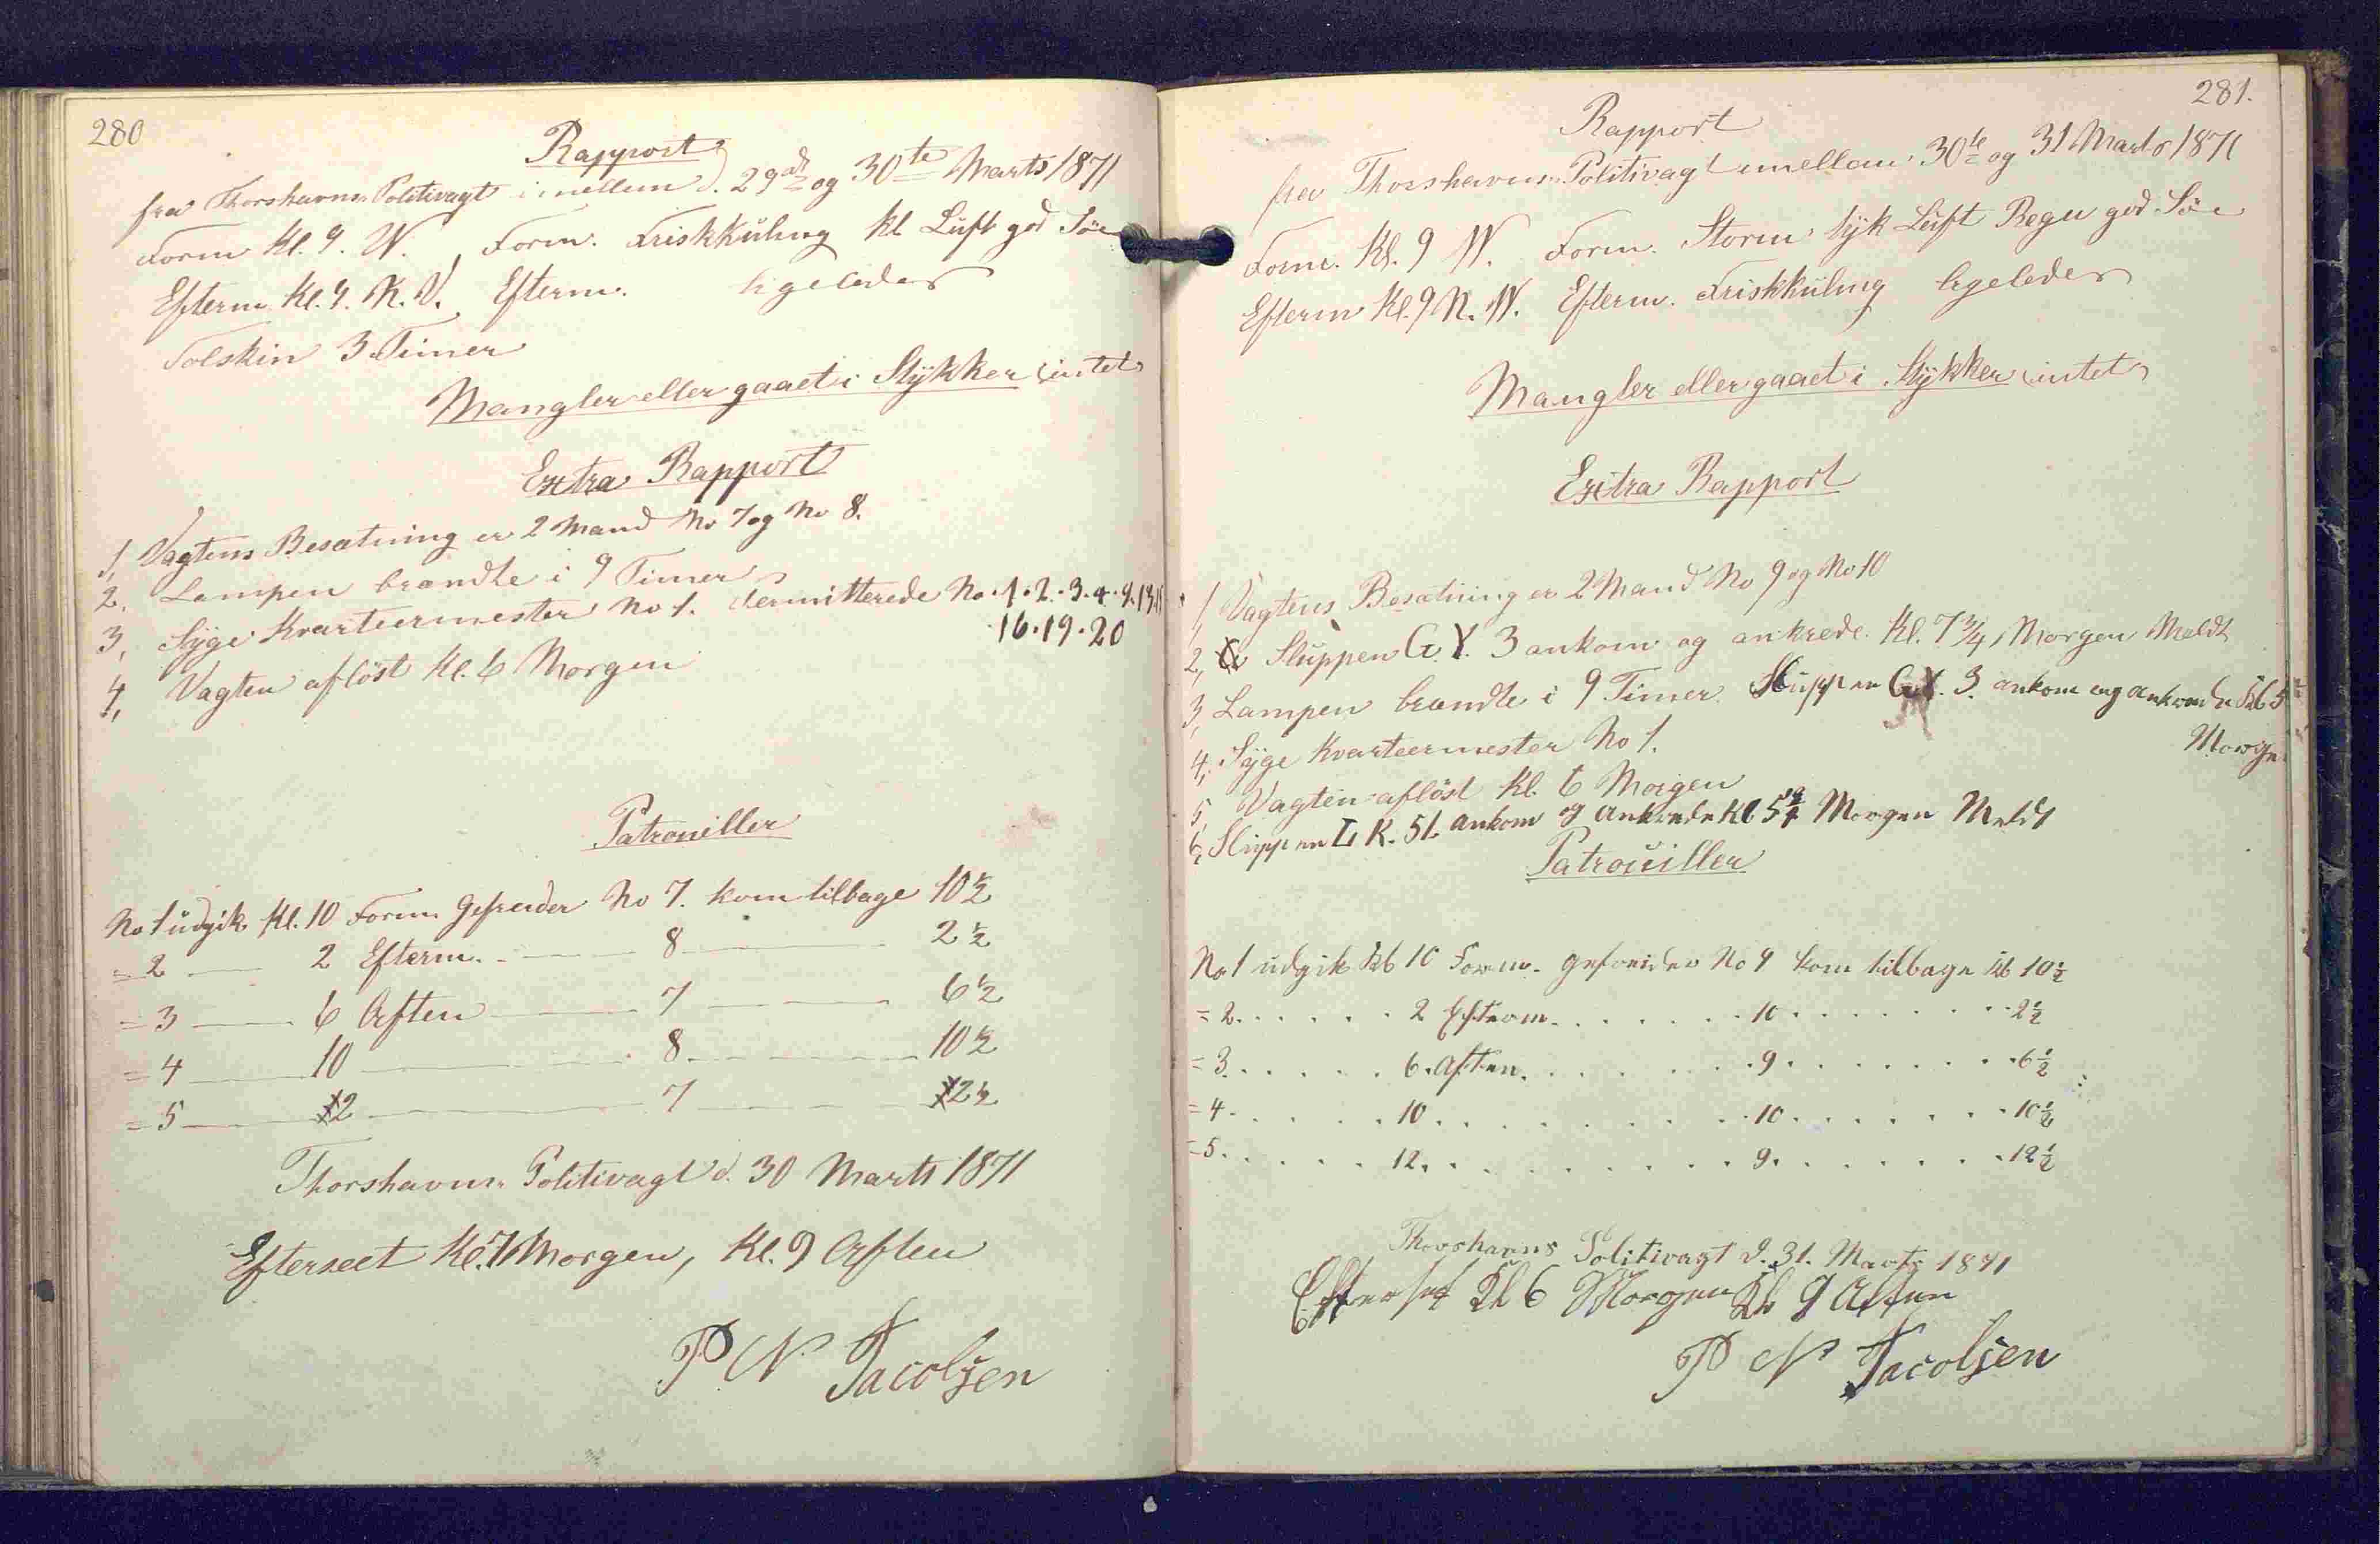 280
Rapport
fra Thorshavns Politivagt imellem d. 29de og 30te Marts 1871
Form Kl. 9. W. Form. Friskkuling kl Luft god Söe
Efterm Kl. 9. N. V. Efterm. ligeledes
Solskin 3 Timer
Mangler eller gaaet i Stykker intet
Extra Rapport
1, Vagtens Besætning er 2 Mand No 7 og No 8.
2, Lampen brændte i 9 Timer
3, Syge Kvarteermester No 1. Permitterede No. 1. 2. 3. 4. 9. 13.
16. 19. 20
4, Vagten aflöst Kl. 6 Morgen
Patrouiller
No 1 udgik Kl. 10 Form Gefreider No 7. kom tilbage 10½
= 2 — 2 Efterm. — 8 — 2½
= 3 — 6 Aften — 7 — 6½
= 4 — 10 — 8 — 10½
= 5 — 12 — 7 — 12½
Thorshavns Politivagt d. 30 Marts 1871
Efterseet Kl. 7 Morgen, Kl. 9 Aften
P N Jacobsen
281.
Rapport
fra Thorshavns Politivagt imellem 30te og 31 Marts 1871
Form. Kl. 9 W. Form. Storm tyk Luft Regn god Söe
Efterm Kl. 9 N. W. Efterm. Friskkuling ligeledes
Mangler eller gaaet i Stykker intet
Extra Rapport
1, Vagtens Besætning er 2 Mand No 9 og No 10
2, Sluppen G. V. 3 ankom og ankrede Kl. 7¾ Morgen Meldt
3, Lampen brændte i 9 Timer. Sluppen G.V. 3. ankom og ankrede Kl 5
Morgen
4, Syge Kvarteermester No 1.
5, Vagten aflöst Kl. 6 Morgen
6, Sluppen L K. 51. ankom og ankrede Kl 5 Morgen Meldt
Patrouiller
No 1 udgik Kl 10 Form. gefreider No 9 kom tilbage Kl 10½
= 2. . . . . . 2 Efterm. . . . . . . 10 . . . . . . . . 2½
= 3. . . . . . 6. Aften. . . . . . . 9 . . . . . . . . 6½
= 4. . . . . 10. . . . . . . . . . 10. . . . . . . 10½
= 5. . . . . 12. . . . . . . . . . 9. . . . . . . 12½
Thorshavns Politivagt d. 31. Marts 1871
Efterset Kl 6 Morgen Kl 9 Aften
P N Jacobsen